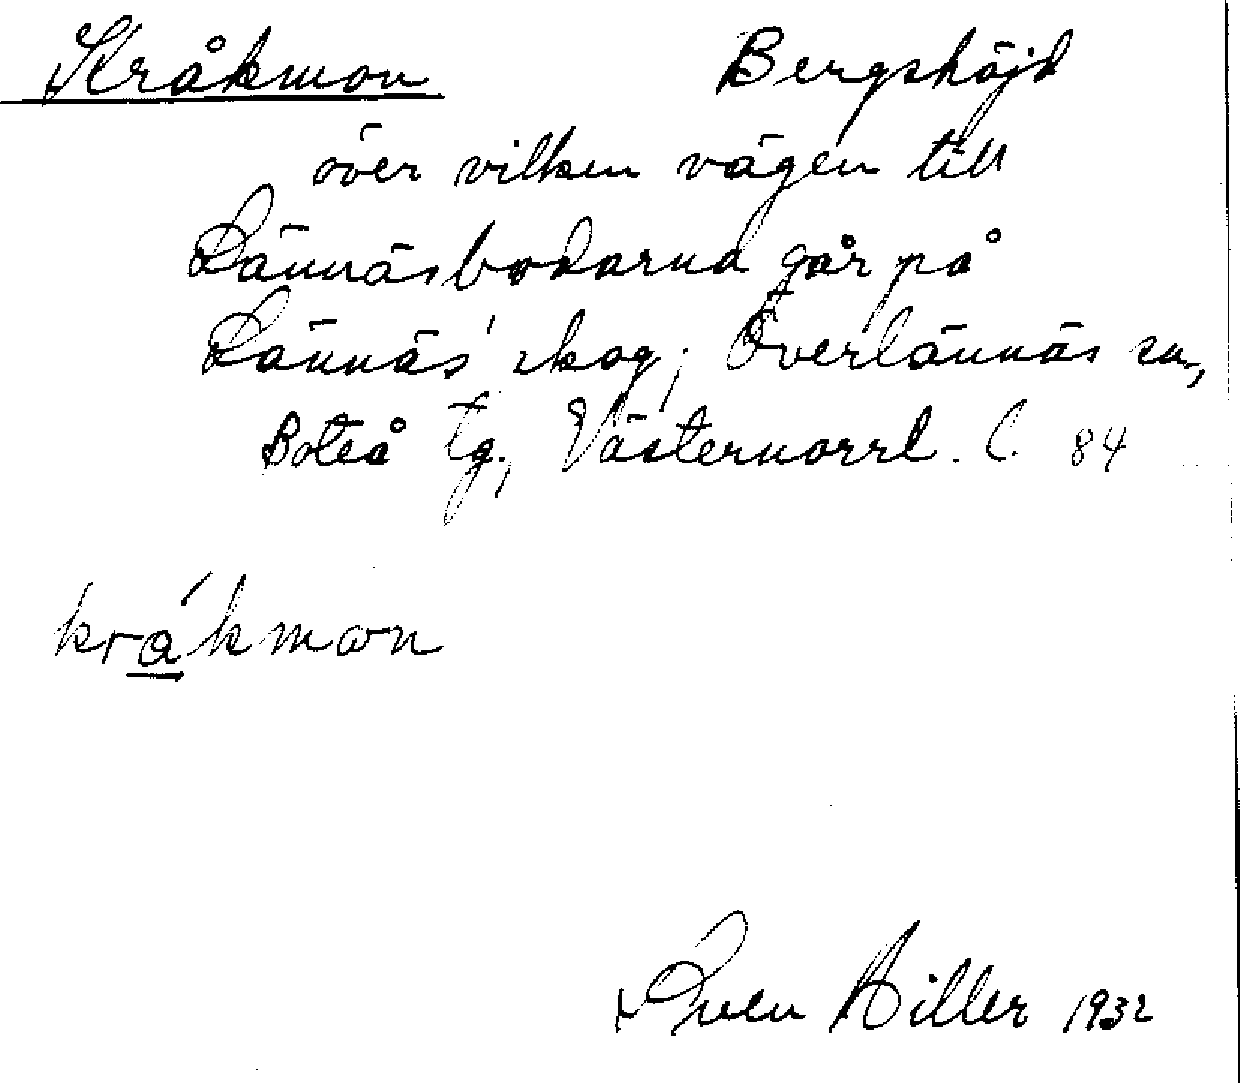 Kråkmon Bergshöjd
över vilken vägen till
Lännäsbodarna går på
Lännäs skog; Överlännäs sn,
Boteå tg., Västernorrl. l. 84
kråkmon
Sven Hiller 1932